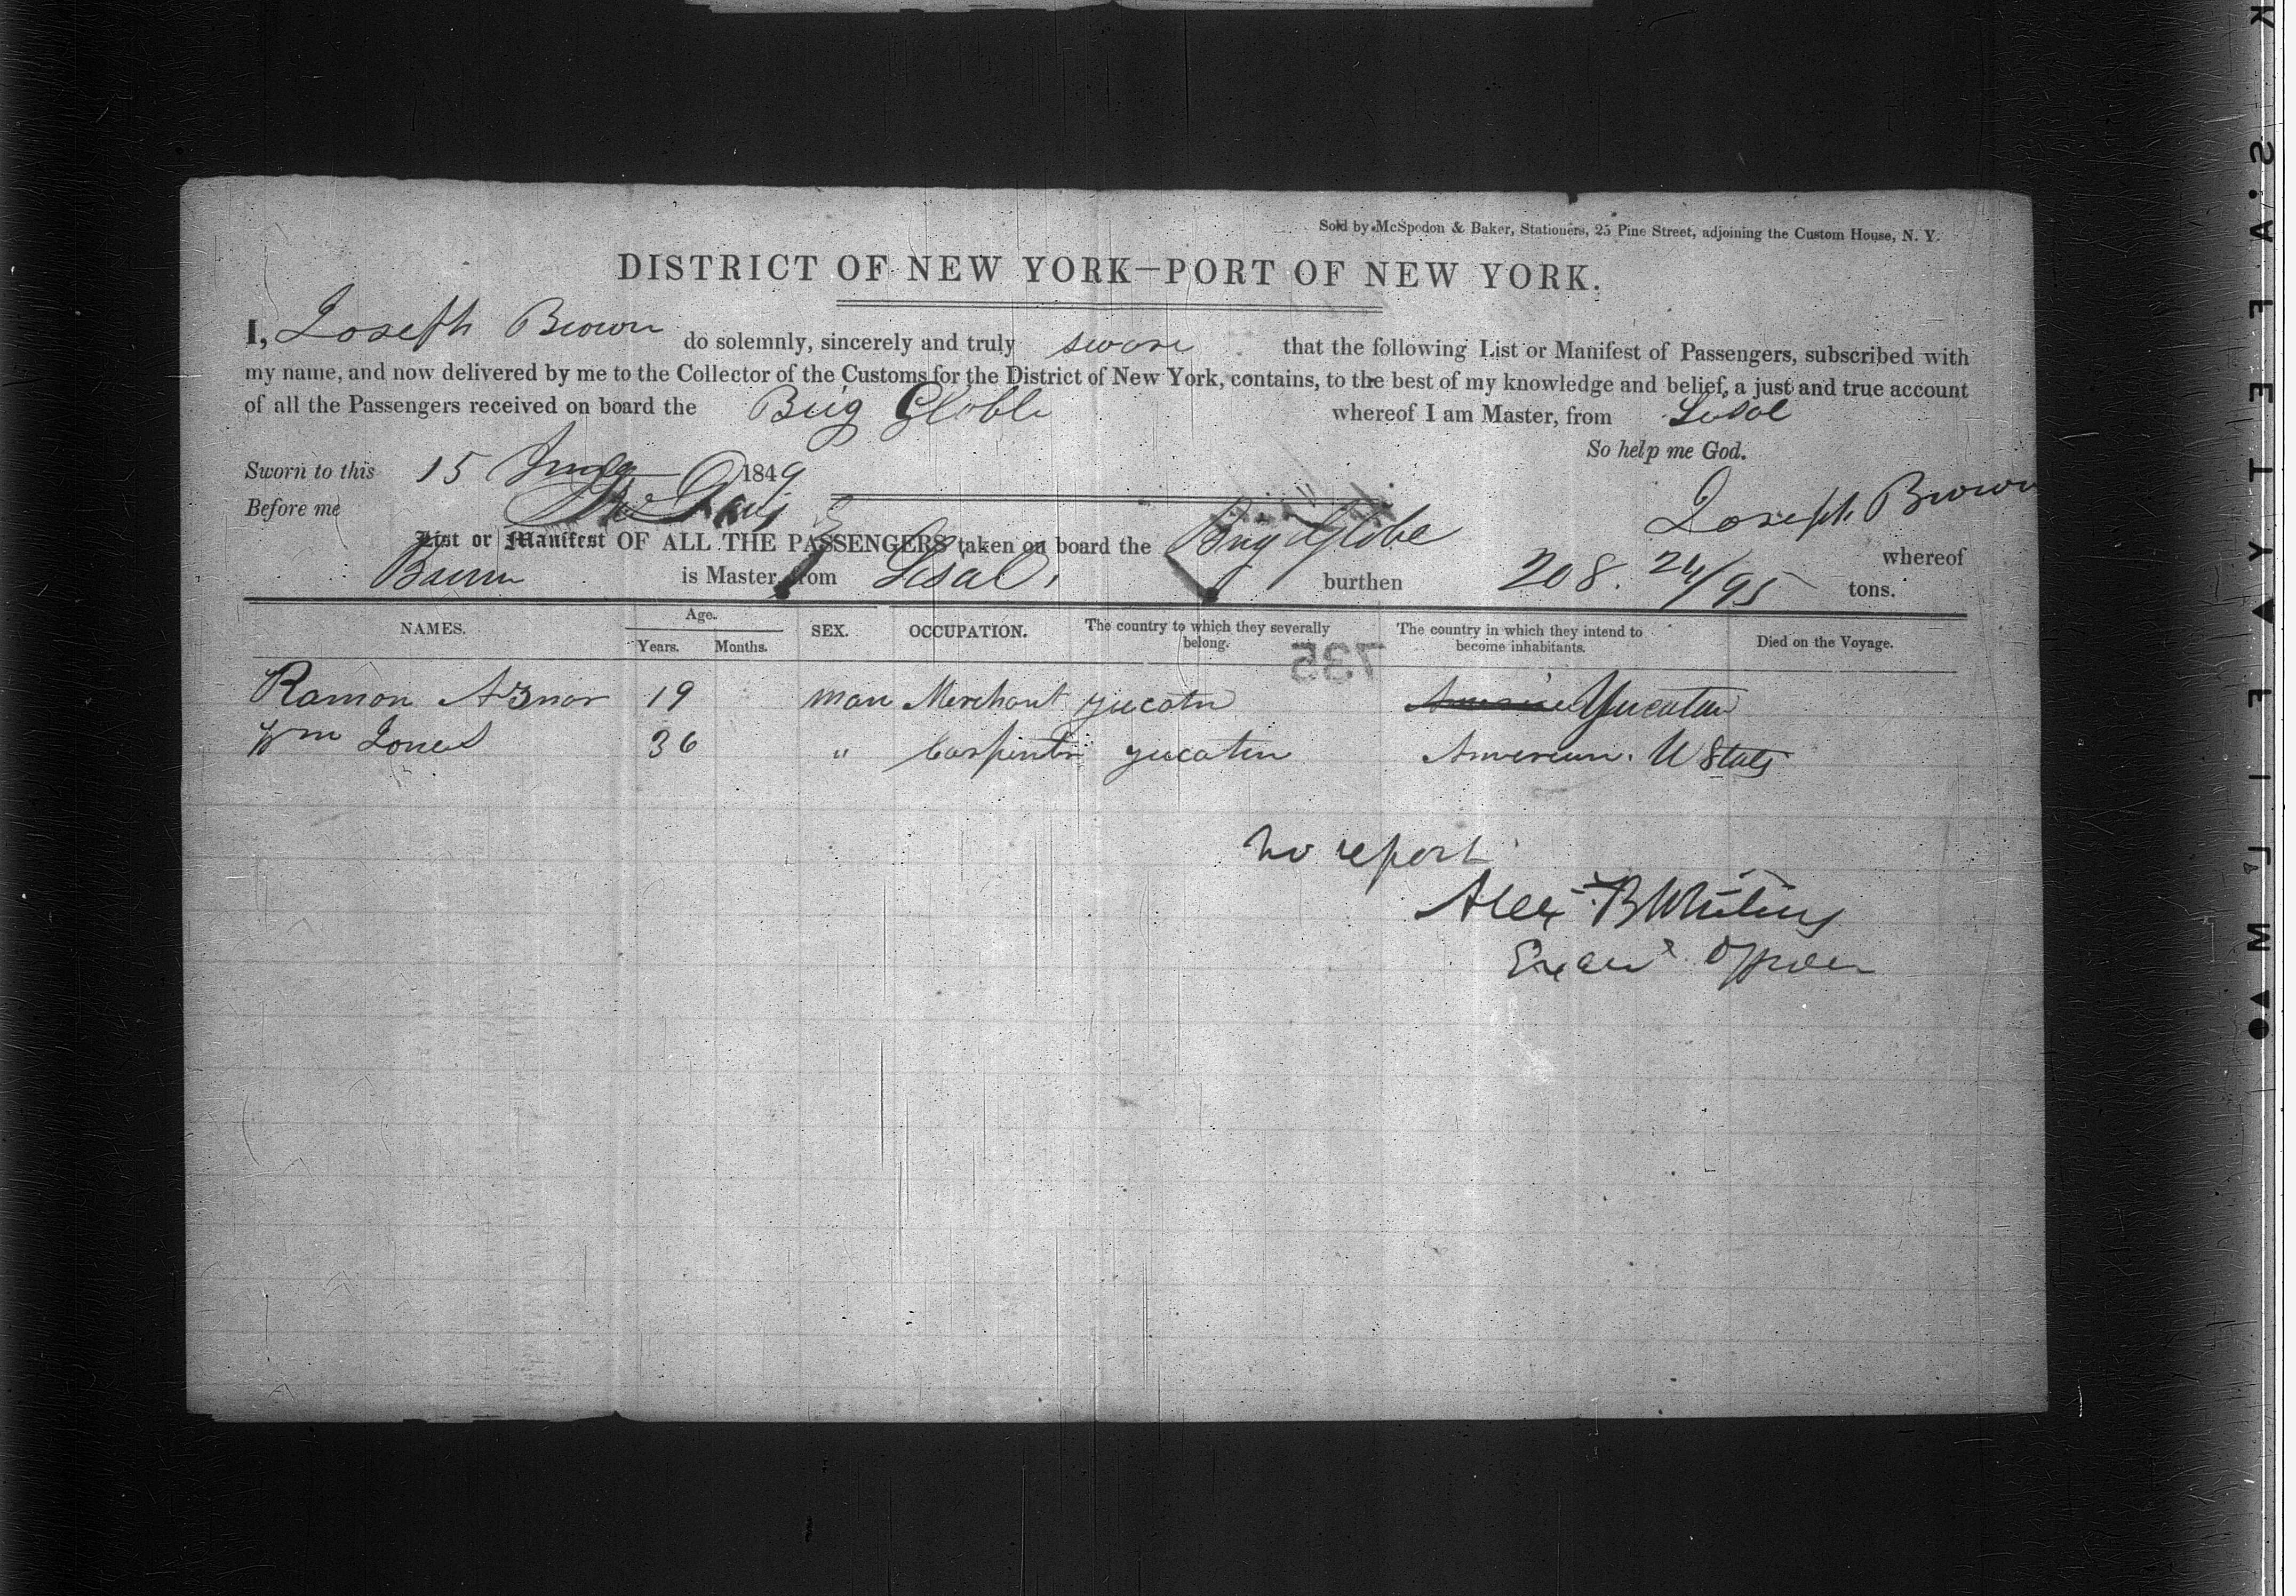 Sold by McSpedon & Baker, Stationers, 25 Pine Street, adjoining the Custom House, N. Y.
DISTRICT OF NEW YORK—PORT OF NEW YORK.
I, Joseph Brown do solemnly, sincerely and truly swore that the following List or Manifest of Passengers, subscribed with
my name, and now delivered by me to the Collector of the Customs for the District of New York, contains, to the best of my knowledge and belief, a just and true account
of all the Passengers received on board the Brig Globe whereof I am Master, from Sisal
So help me God.
Sworn to this 15 1849
Before me
Joseph Brown
List or Manifest OF ALL THE PASSENGERS taken on board the Brig Globe whereof
Brown is Master, from Sisal, burthen 208. 24/95 tons.
NAMES. Age. Years. Months. SEX. OCCUPATION. The country to which they severally belong. The country in which they intend to become inhabitants. Died on the Voyage.
735
Ramon Aznar 19 man Merchant yucatn Yucatan
Wm Jones 36 " Carpentr yucatan American. U States
No report
Alex B Whiting
SAFETY FILM